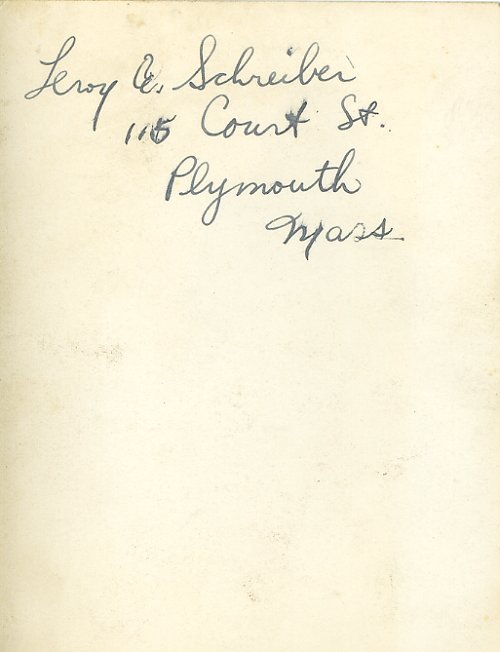 Leroy E. Schreiber
115 Court St.
Plymouth
Mass